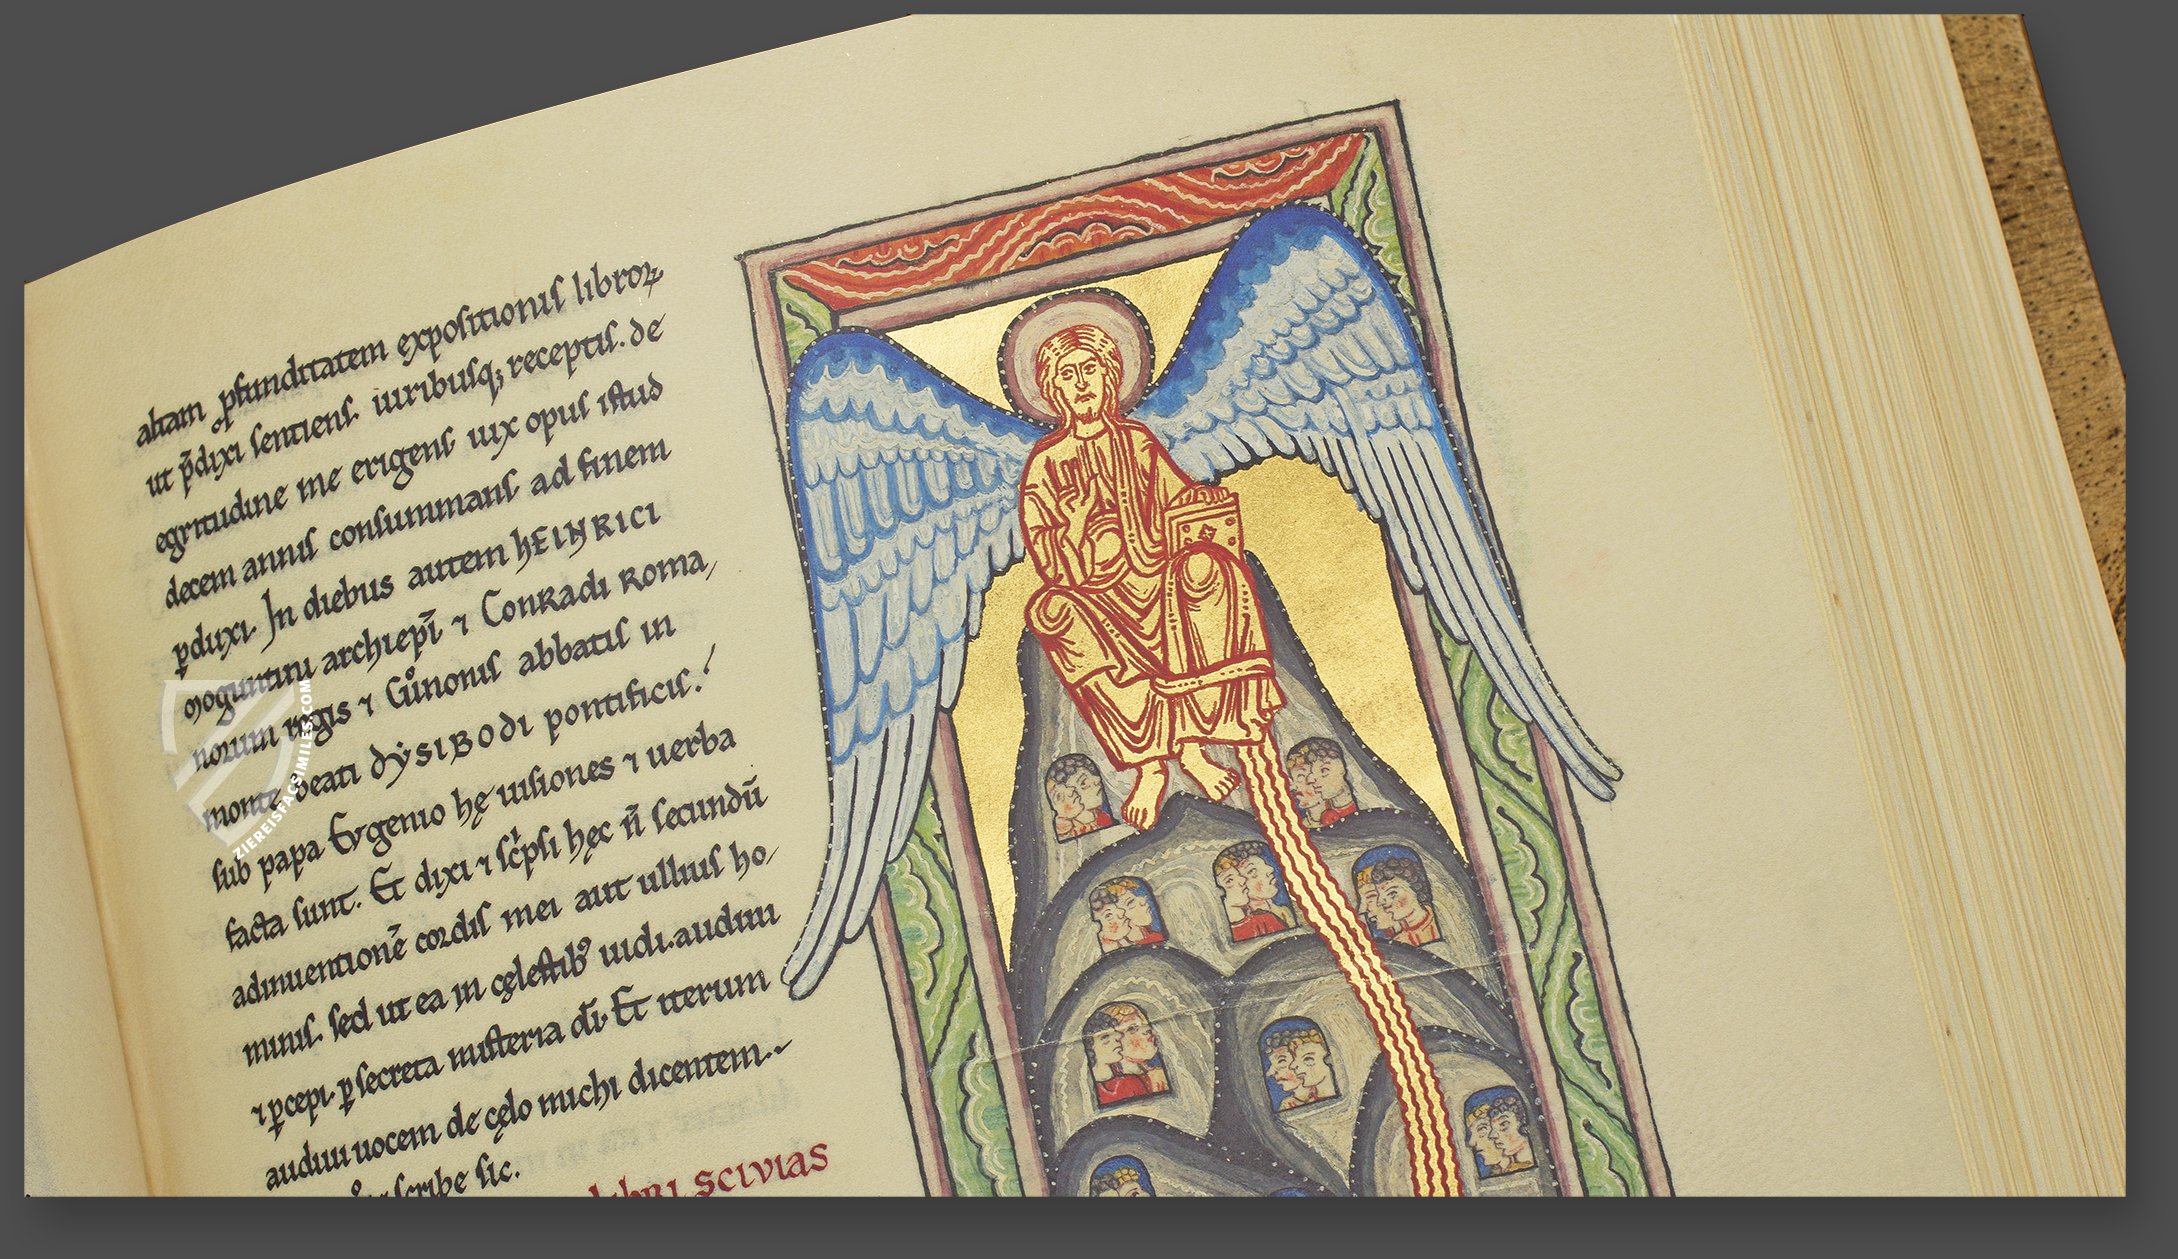 altam ꝓfunditatem expoſitionıſ libroꝝ
ut p̄dixi ſentienſ. uiribuſq; receptıſ. de
egritudine me erigenſ uix opuſ iſtud
decem annıſ conſummanſ ad finem
ꝑduxi. In diebus autem hEINRICI
moguntini archiep̄i ⁊ Conradi Roma/
norum regis ⁊ Cůnonıſ abbatiſ in
monte beati dẏSIBODI pontificiſ.
ſub papa Evgenio hę uiſiones ⁊ uerba
facta ſunt. Et dixi ⁊ ſcͥpſi hęc n̄ ſecundū
adinuentionē cordiſ mei aut ulliuſ ho/
miniſ. ſed ut ea in cęleſtibꝰ uidi. audiui
⁊ ꝑcepi. ꝑ ſecreta miſteria dı̄. Et iterum
audiui uocem de cęlo michi dicentem.
ſcribe ſic.
libRI SCIVIAS
ZIEREISFACSIMILES.COM